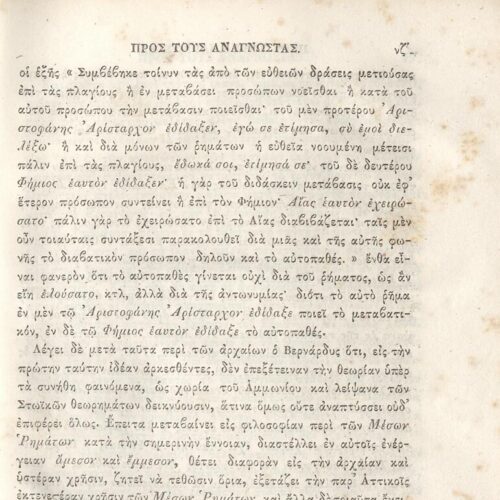 ΠΡΟΣ ΤΟΥΣ ΑΝΑΓΝΩΣΤΑΣ. νζ′
οἱ ἑξῆς « Συμβέβηκε τοίνυν τὰς ἀπὸ τῶν εὐθειῶν δράσεις μετιούσας
ἐπὶ τὰς πλαγίους ἢ ἐν μεταβάσει προσώπων νοεῖσθαι ἢ κατὰ τοῦ
αὐτοῦ προσώπου τὴν μετάβασιν ποιεῖσθαι· τοῦ μὲν προτέρου Ἀρι-
στοφάνης Ἀρίσταρχον ἐδίδαξεν, ἐγώ σε ἐτίμησα, σὺ ἐμοὶ διε-
λέξω· ἢ καὶ διὰ μόνων τῶν ῥημάτων ἡ εὐθεῖα νοουμένη μέτεισι
πάλιν ἐπὶ τὰς πλαγίους, ἔδωκά σοι, ἐτίμησά σε· τοῦ δὲ δευτέρου
Φήμιος ἑαυτὸν ἐδίδαξεν· ἡ γὰρ τοῦ διδάσκειν μετάβασις οὐκ ἐφ'
ἕτερον πρόσωπον συντείνει ἢ ἐπὶ τὸν Φήμιον· Αἴας ἑαυτὸν ἐχειρώ-
σατο· πάλιν γὰρ τὸ ἐχειρώσατο ἐπὶ τὸ Αἴας διαβιβάζεται· ταῖς μὲν
οὖν τοιαύταις συντάξεσι παρακολουθεῖ διὰ μιᾶς καὶ τῆς αὐτῆς φω-
νῆς τὸ διαβατικὸν πρόσωπον δηλοῦν καὶ τὸ αὐτοπαθές. » ἔνθα εἶ-
ναι φανερὸν ὅτι τὸ αὐτοπαθὲς γίνεται οὐχὶ διὰ τοῦ ῥήματος, ὡς ἂν
εἴη ἐλούσατο, κτλ, ἀλλὰ διὰ τῆς ἀντωνυμίας· διότι τὸ αὐτὸ ῥῆμα
ἐν μὲν τῷ Ἀριστοφάνης Ἀρίσταρχον ἐδίδαξε ποιεῖ τὸ μεταβατι-
κόν, ἐν δὲ τῷ Φήμιος ἑαυτὸν ἐδίδαξε τὸ αὐτοπαθές.
Λέγει δὲ μετὰ ταῦτα περὶ τῶν ἀρχαίων ὁ Βερνάρδυς ὅτι, εἰς τὴν
πρώτην ταύτην ἰδέαν ἀρκεσθέντες, δὲν ἐπεξέτειναν τὴν θεωρίαν ὑπὲρ
τὰ συνήθη φαινόμενα, ὡς χωρία τοῦ Ἀμμωνίου καὶ λείψανα τῶν
Στωϊκῶν θεωρημάτων δεικνύουσιν, ἅτινα ὅμως οὔτε ἀναπτύσσει οὐδ'
ἐπιφέρει ὅλως. Ἔπειτα μεταβαίνει εἰς φιλοσοφίαν περὶ τῶν Μέσων
Ῥημάτων κατὰ τὴν σημερινὴν ἔννοιαν, διαστέλλει ἐν αὐτοῖς ἐνέρ-
γειαν ἄμεσον καὶ ἔμμεσον, θέτει διαφορὰν εἰς τὴν ἀρχαίαν καὶ
ὑστέραν χρῆσιν, ζητεῖ νὰ τεθῶσιν ὅρια, ἐξετάζει τὴν παρ' Ἀττικοῖς
ἐκτενεστέραν χρῆσιν τῶν Μέσων Ῥημάτων καὶ ἄλλα